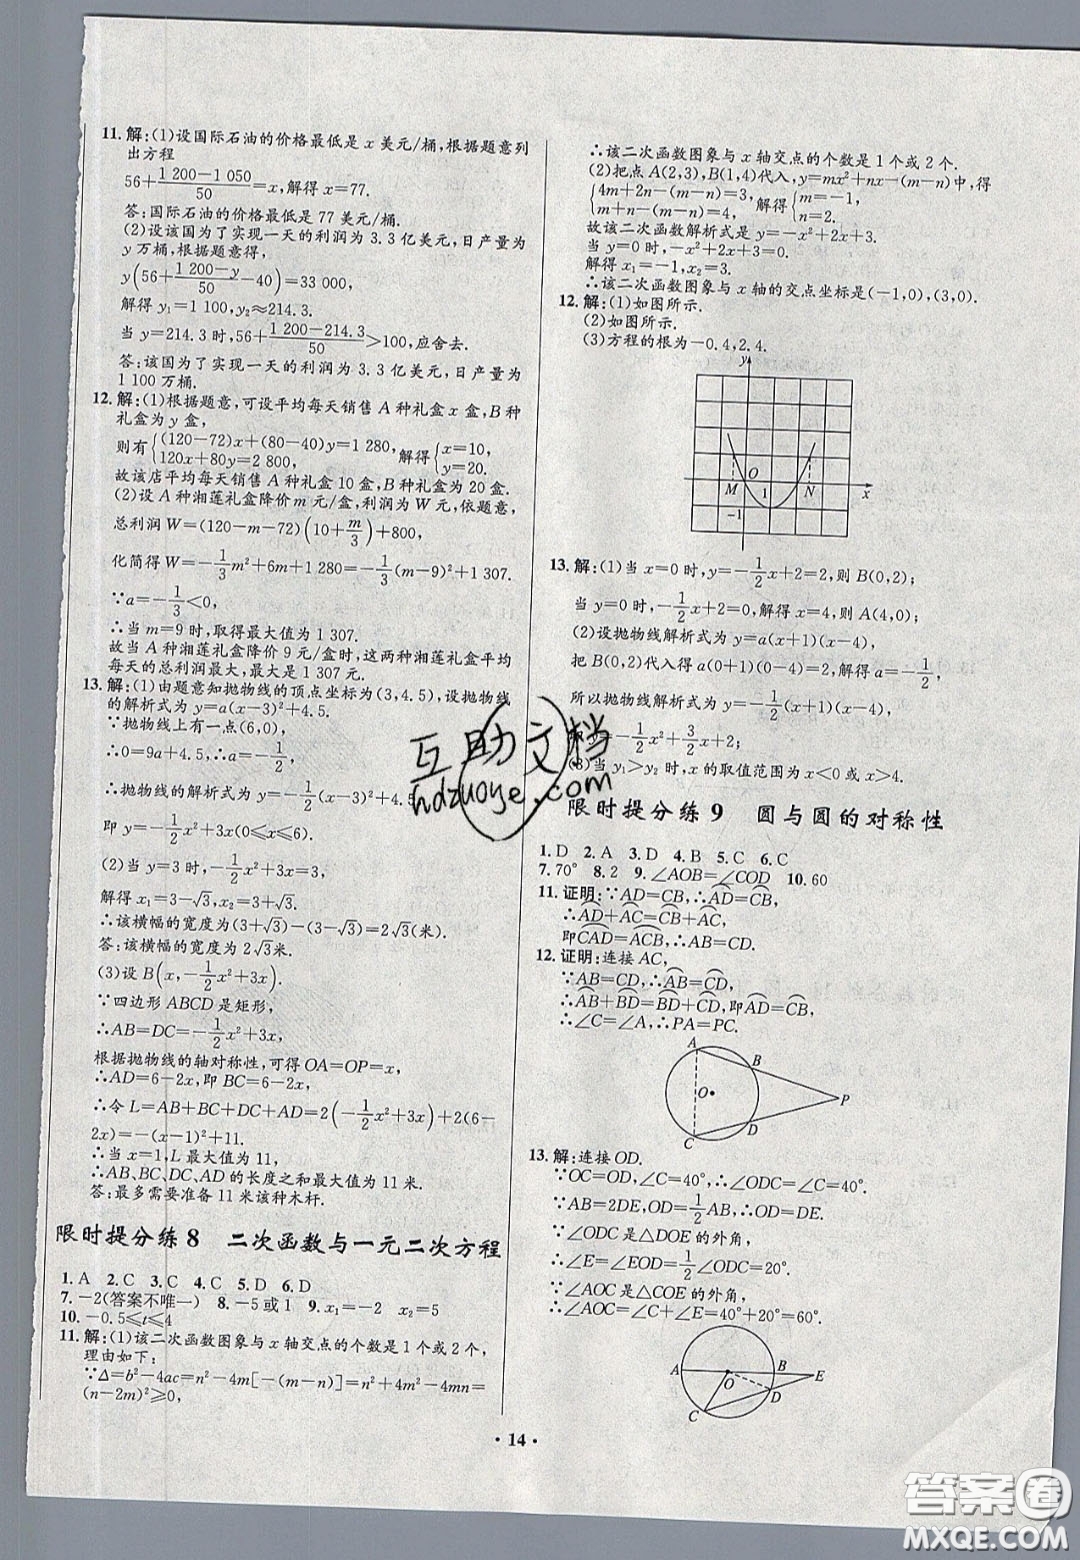 11. 解:(1)设国际石油的价格最低是 x 美元/桶,根据题意列
出方程
56+(1 200-1 050)/50=x,解得 x=77.
答:国际石油的价格最低是 77 美元/桶.
(2)设该国为了实现一天的利润为 3.3 亿美元,日产量为
y 万桶,根据题意得,
y(56+(1 200-y)/50-40)=33 000,
解得 y₁=1 100,y₂≈214.3.
当 y=214.3 时,56+(1 200-214.3)/50>100,应舍去.
答:该国为了实现一天的利润为 3.3 亿美元,日产量为
1 100 万桶.
12. 解:(1)根据题意,可设平均每天销售 A 种礼盒 x 盒,B 种
礼盒为 y 盒,
则有{(120-72)x+(80-40)y=1 280, 120x+80y=2 800, 解得{x=10, y=20.
故该店平均每天销售 A 种礼盒 10 盒,B 种礼盒为 20 盒.
(2)设 A 种湘莲礼盒降价 m 元/盒,利润为 W 元,依题意,
总利润 W=(120-m-72)(10+m/3)+800,
化简得 W=-1/3m²+6m+1 280=-1/3(m-9)²+1 307.
∵a=-1/3<0,
∴当 m=9 时,取得最大值为 1 307.
故当 A 种湘莲礼盒降价 9 元/盒时,这两种湘莲礼盒平均
每天的总利润最大,最大是 1 307 元.
13. 解:(1)由题意知抛物线的顶点坐标为(3,4.5),设抛物线
的解析式为 y=a(x-3)²+4.5.
∵抛物线上有一点(6,0),
∴0=9a+4.5,∴a=-1/2,
∴抛物线的解析式为 y=-1/2(x-3)²+4.5,
即 y=-1/2x²+3x(0≤x≤6).
(2)当 y=3 时,-1/2x²+3x=3,
解得 x₁=3-√3,x₂=3+√3.
∴该横幅的宽度为(3+√3)-(3-√3)=2√3(米).
答:该横幅的宽度为 2√3米.
(3)设 B(x,-1/2x²+3x).
∵四边形 ABCD 是矩形,
∴AB=DC=-1/2x²+3x,
根据抛物线的轴对称性,可得 OA=OP=x,
∴AD=6-2x,即 BC=6-2x,
∴令 L=AB+BC+DC+AD=2(-1/2x²+3x)+2(6-
2x)=-(x-1)²+11.
∴当 x=1,L 最大值为 11,
∴AB,BC,DC,AD 的长度之和最大值为 11 米.
答:最多需要准备 11 米该种木杆.
限时提分练 8 二次函数与一元二次方程
1. A 2. C 3. C 4. C 5. D 6. D
7. -2(答案不唯一) 8. -5 或 1 9. x₁=-2 x₂=5
10. -0.5≤t≤4
11. 解:(1)该二次函数图象与 x 轴交点的个数是 1 个或 2 个,
理由如下:
∵Δ=b²-4ac=n²-4m[-(m-n)]=n²+4m²-4mn=
(n-2m)²≥0,
∴该二次函数图象与 x 轴交点的个数是 1 个或 2 个.
(2)把点 A(2,3),B(1,4)代入,y=mx²+nx-(m-n)中,得
{4m+2n-(m-n)=3, m+n-(m-n)=4, 解得{m=-1, n=2.
故该二次函数解析式是 y=-x²+2x+3.
当 y=0 时,-x²+2x+3=0.
解得 x₁=-1,x₂=3.
∴该二次函数图象与 x 轴的交点坐标是(-1,0),(3,0).
12. 解:(1)如图所示.
(2)如图所示.
(3)方程的根为-0.4,2.4.
y
O
M 1 N x
-1
13. 解:(1)当 x=0时,y=-1/2x+2=2,则 B(0,2);
当 y=0 时,-1/2x+2=0,解得 x=4,则 A(4,0);
(2)设抛物线解析式为 y=a(x+1)(x-4),
把 B(0,2)代入得 a(0+1)(0-4)=2,解得 a=-1/2,
所以抛物线解析式为 y=-1/2(x+1)(x-4),
即 y=-1/2x²+3/2x+2;
(3)当 y₁>y₂ 时,x 的取值范围为 x<0 或 x>4.
限时提分练 9 圆与圆的对称性
1. D 2. A 3. D 4. B 5. C 6. C
7. 70° 8. 2 9. ∠AOB=∠COD 10. 60
11. 证明:∵AD=CB,∴A͡D=C͡B,
∴A͡D+A͡C=C͡B+A͡C,
即C͡AD=A͡CB,∴AB=CD.
12. 证明:连接 AC,
∵AB=CD,∴A͡B=C͡D,
∴A͡B+B͡D=B͡D+C͡D,即A͡D=C͡B,
∴∠C=∠A,∴PA=PC.
A
B
O
P
D
C
13. 解:连接 OD.
∵OC=OD,∠C=40°,∴∠ODC=∠C=40°,
∵AB=2DE,OD=1/2AB,∴OD=DE,
∵∠ODC 是△DOE 的外角,
∴∠E=∠EOD=1/2∠ODC=20°.
∵∠AOC 是△COE 的外角,
∴∠AOC=∠C+∠E=40°+20°=60°.
A B E
O
D
C
· 14 ·
互助文档
hdzuoye.com
答案圈
MXQE.COM